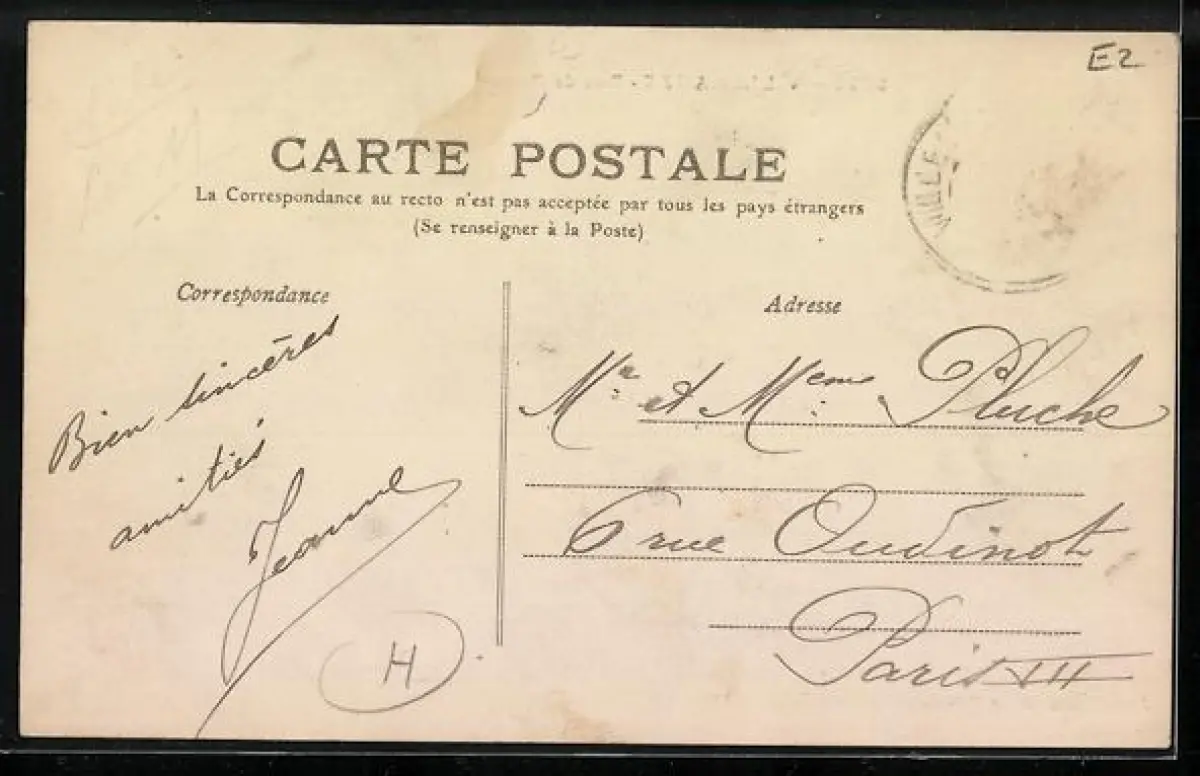 E2
CARTE POSTALE
La Correspondance au recto n'est pas acceptée par tous les pays étrangers
(Se renseigner à la Poste)
Correspondance
Adresse
Bien sincères
amitiés
Jeanne
H
Mr et Meme Pluche
6 rue Oudinot
Paris
VILLE